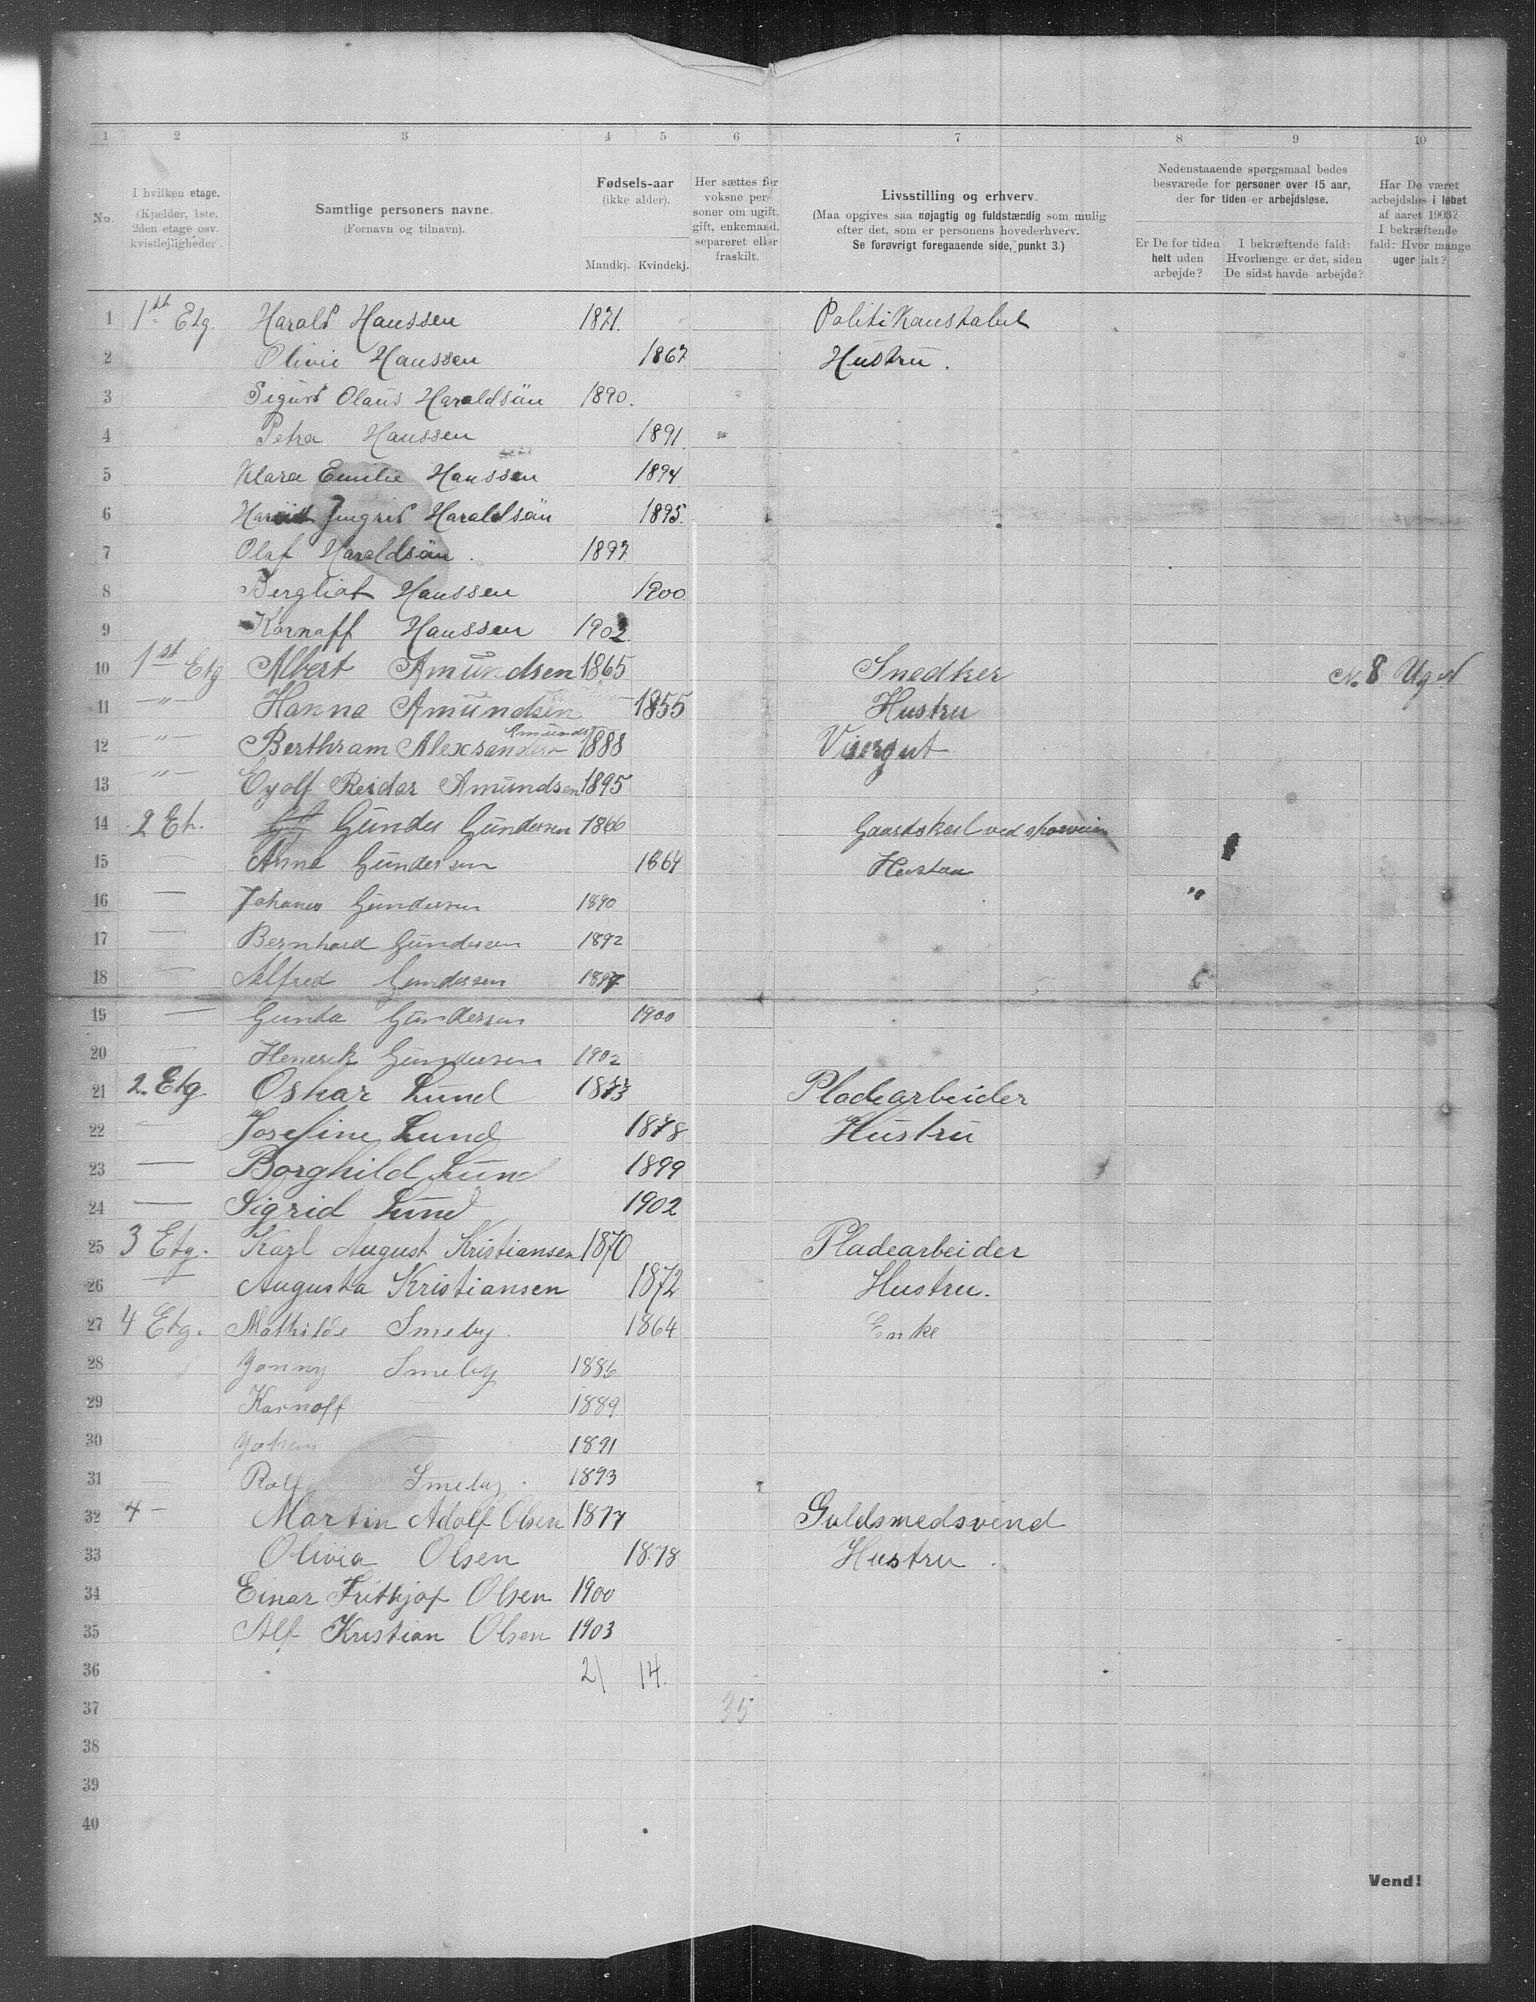 1 2 3 4 5 6 7 8 9 10
No.
I hvilken etage. (Kjælder, 1ste, 2den etage osv. kvistlejligheder.
Samtlige personers navne. (Fornavn og tilnavn).
Fødsels-aar (ikke alder).
Mandkj. Kvindekj.
Her sættes for voksne personer om ugift, gift, enkemand, separeret eller fraskilt.
Livsstilling og erhverv.
(Maa opgives saa nøjagtig og fuldstændig som mulig efter det, som er personens hovederhverv.
Se forøvrigt foregaaende side, punkt 3.)
Nedenstaaende spørgsmaal bedes besvarede for personer over 15 aar, der for tiden er arbejdsløse.
Er De for tiden helt uden arbejde?
I bekræftende fald: Hvorlænge er det, siden De sidst havde arbejde?
Har De været arbejdsløs i løbet af aaret 1903? I bekræftende fald: Hvor mange uger ialt?
1 1st Etg. Harald Hanssen 1871. Politikonstabel
2 Olivie Hanssen 1867 Hustru.
3 Sigurd Olaus Haraldsön 1890.
4 Petra Hanssen 1891
5 Klara Emilie Hanssen 1894
6 Ingrid Haraldsön 1895.
7 Olaf Haraldsön. 1897
8 Bergliot Hanssen 1900
9 Karnaff Hanssen 1902
10 1st Etg Albert Amundsen 1865 Snedker 8 Uger
11 -"- Hanna Amundsen 1855 Hustru
12 -"- Berthram Alexsander Amundsen 1888 Visergut
13 -"- Eyolf Reidar Amundsen 1895
14 2 Et. Gunder Gundersen 1866 Gaardskarl ved sporveien
15 — Anna Gundersen 1864 Hustru
16 — Johanes Gundersen 1890
17 — Bernhard Gundersen 1892
18 — Alfred Gundersen 1897
19 — Gunda Gundersen 1900
20 — Henerik Gundersen 1902
21 2. Etg Oskar Lund 1873 Pladearbeider
22 — Josefine Lund 1878 Hustru
23 — Borghild Lund 1899
24 — Sigrid Lund 1902
25 3 Etg. Karl August Kristiansen 1870 Pladearbeider
26 — Augusta Kristiansen 1872 Hustru.
27 4 Etg. Mathilde Smeby. 1864 Enke
28 Yonny Smeby 1886
29 Karnoff — 1889
30 Yohan — 1891
31 — Rolf Smeby. 1893
32 4 — Martin Adolf Olsen 1877 Guldsmedsvend
33 Olivia Olsen 1878 Hustru.
34 Einar Frithjof Olsen 1900
35 Alf Kristian Olsen 1903
36 21 14.
37 35
38
39
40
Vend!